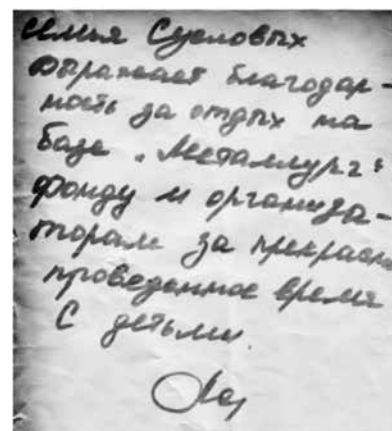 семья Сусловых
выражает благодар-
ность за отдых на
базе „Металлург"
фонду и организа-
торам за прекрасно
проведенное время
с детьми.